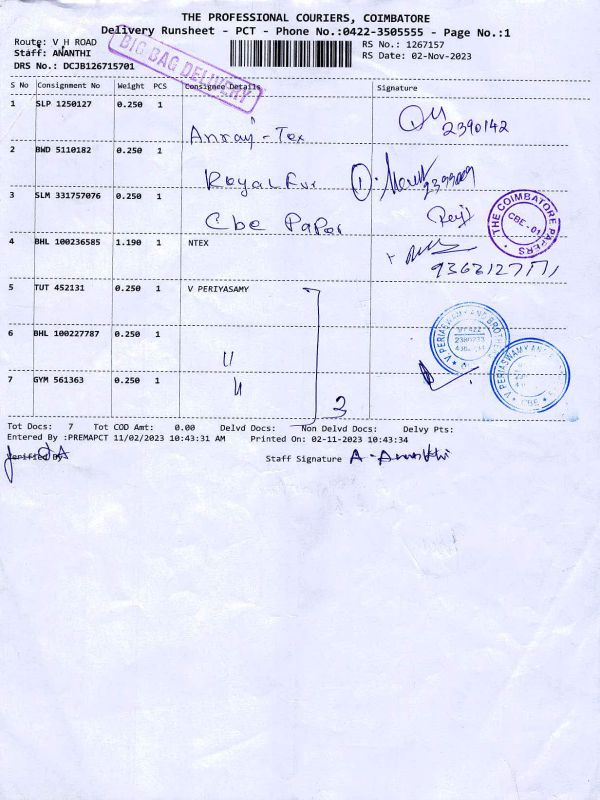 THE PROFESSIONAL COURIERS, COIMBATORE
Delivery Runsheet - PCT - Phone No.:0422-3505555 - Page No.:1
Route: V H ROAD
RS No.: 1267157
Staff: ANANTHI
RS Date: 02-Nov-2023
DRS No.: DCJB126715701
BIG BAG DELIVERY
S No Consignment No Weight PCS Consignee Details Signature
1 SLP 1250127 0.250 1
Anray - Tex 2390142
2 BWD 5110182 0.250 1
Royal Fur
3 SLM 331757076 0.250 1
Cbe Paper
THE COIMBATORE PAPERS
CBE - 01
4 BHL 100236585 1.190 1 NTEX
5 TUT 452131 0.250 1 V PERIYASAMY
V PERIASWAMY AND BROTHERS
6 BHL 100227787 0.250 1
"
V PERIASWAMY AND
CBE
7 GYM 561363 0.250 1
"
3
Tot Docs: 7 Tot COD Amt: 0.00 Delvd Docs: Non Delvd Docs: Delvy Pts:
Entered By :PREMAPCT 11/02/2023 10:43:31 AM Printed On: 02-11-2023 10:43:34
Verified By
Staff Signature A. Ananthi